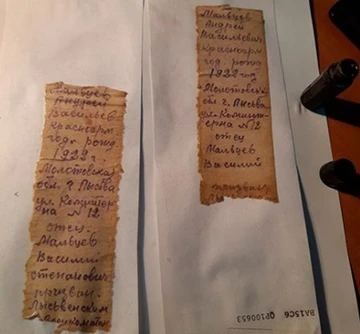 Мальцев
Андрей
Васильев
красноарм
год. рожд
1922 г.
Молотовская
обл. г. Лысьва
ул. Коминтер
на № 12
отец
Мальцев
Василий
степанович
призван
Лысьвенским
Мальцев
Андрей
Васильевич
красноарм
год. рожд
1922 год
Молотовск
обл. г. Лысьва
ул. Коминт
ерна № 12
отец
Мальцев
Василий
призван
BA15C6 QP100653